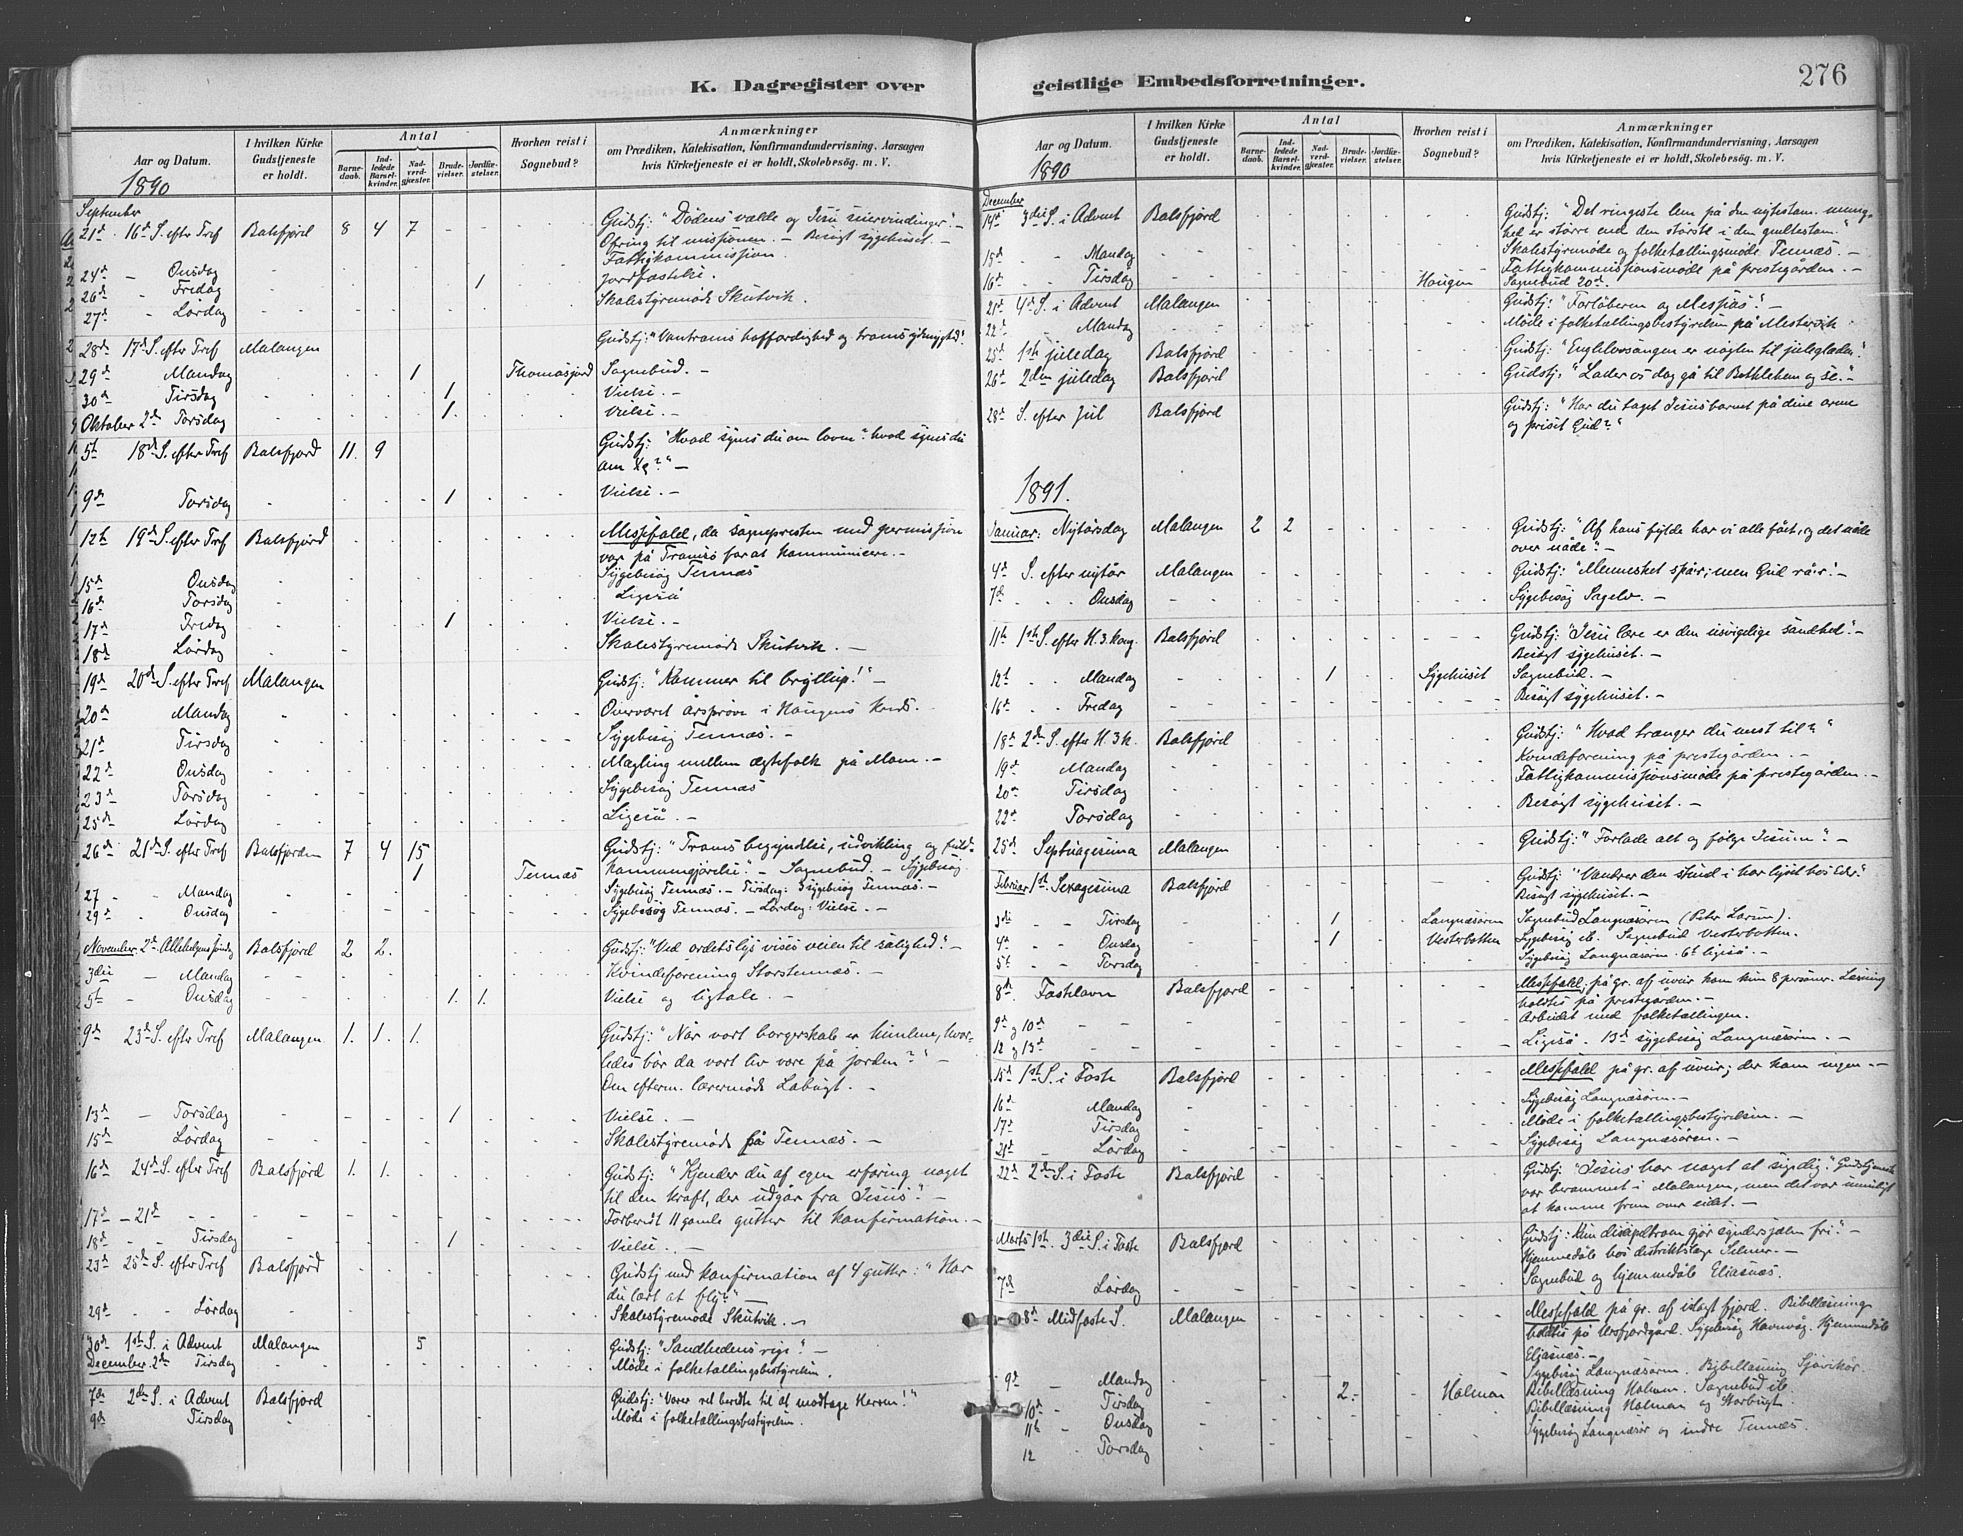 K. Dagregister over
Aar og Datum.
I hvilken Kirke Gudstjeneste er holdt.
Antal
Barnedaab.
Indledede Barselkvinder.
Nadverdgjæster.
Brudevielser.
Jordfæstelser.
Hvorhen reist i Sognebud?
Anmærkninger
om Prædiken, Katekisation, Konfirmandundervisning, Aarsagen
hvis Kirketjeneste ei er holdt, Skolebesøg. m. V.
1890
September
21de 16de S. efter Tref Balsfjord 8 4 7 - - Gudstj: "Dødens vælde og Jesu seiervindinger". -
Ofring til missionen. - Besøgt sygehuset. -
24de - Onsdag Fattigkommission.
26de - Fredag 1 Jordfæstelse.
27de - Lørdag Skolestyremøde Skutvik. -
28de 17de S. efter Tref Malangen Gudstj: "Vantroens hoffærdighed og troens ydmyghed".
29de Mandag 1 Thomasjord Sognebud. -
30te Tirsdag 1 Vielse. -
Oktober 2de Torsdag 1. Vielse. -
5te 18de S. efter Tref Balsfjord 11. 9 Gudstj: "Hvad synes du om loven? hvad synes du
om Xs?" -
9de Torsdag 1 Vielse. -
12te 19de S. efter Tref Balsfjord Messefald, da sognepresten med permission
var på Tromsø for at kommunicere. -
15de Onsdag Sygebesøg Tennæs
16de Torsdag Ligeså
17de Fredag 1 Vielse. -
18de Lørdag Skolestyremøde Skutvik. -
19de 20de S. efter Tref Malangen Gudstj: "Kommer til bryllup!" -
20de Mandag Overværet årsprøve i Haugens kreds.
21de Tirsdag Sygebesøg Tennæs. -
22de Onsdag Mægling mellem ægtefolk på Moen. -
23de Torsdag Sygebesøg Tennæs
25de Lørdag Ligeså. -
26de 21de S. efter Tref Balsfjorden 7 4 15 Gudstj: "Troens begyndelse, udvikling og fuld-
1 Tennæs kommengjørelse". - Sognebud. - Sygebesøg
27 - Mandag Sygebesøg Tennæs. - Tirsdag: Sygebesøg Tennæs. -
29de - Onsdag Sygebesøg Tennæs. - Lørdag: Vielse. -
November 2de Allehelgens Søndag Balsfjord 2 2. Gudstj: "Ved ordets lys vises veien til salighed". -
3die - Mandag Kvindeforening Storstennæs. -
5te - Onsdag 1. 1. Vielse og ligtale. -
9de 23de S. efter Tref Malangen 1. 1. 1. Gudstj: "Når vort borgerskab er himlene, hvor-
ledes bør da vort liv være på jorden?" -
Om efterm. lærermøde Labugt. -
13de - Torsdag 1 Vielse. -
15de Lørdag Skolestyremøde på Tennæs. -
16de 24de S. efter Tref Balsfjord 1. 1. Gudstj: "Kjender du af egen erfaring noget
til den kraft, der udgår fra Jesus". -
17de - 21de Forberedt 11 gamle gutter til konfirmation. -
18de - Tirsdag 1 Vielse. -
23de 25de S. efter Tref Balsfjord Gudstj med konfirmation af 4 gutter: "Har
du lært at fly?" -
29de - Lørdag Skolestyremøde Skutvik. -
30de 1ste S. i Advent Malangen 5 Gudstj: "Sandhedens rige". -
December 2de Tirsdag Møde i folketællingsbestyrelsen.
7de 2den S. i Advent Balsfjord Gudstj: "Være rel beredte til at modtage Herren!"
9de Tirsdag Møde i folketællingsbestyrelsen.
geistlige Embedsforretninger.
276
Aar og Datum.
I hvilken Kirke Gudstjeneste er holdt.
Antal
Barnedaab.
Indledede Barselkvinder.
Nadverdgjæster.
Brudevielser.
Jordfæstelser.
Hvorhen reist i Sognebud?
Anmærkninger
om Prædiken, Katekisation, Konfirmandundervisning, Aarsagen
hvis Kirketjeneste ei er holdt, Skolebesøg. m. V.
1890
December
14de 3die S. i Advent Balsfjord Gudstj: "Det ringeste lem på den nytestam. menig-
hed er større end den største i den gmltestam."
15de - Mandag Skolestyremøde og folketællingsmøde Tennæs. -
16de - Tirsdag Fattigkommissionsmøde på prestegården. -
Haugen Sognebud 20de. -
21de 4de S. i Advent Malangen Gudstj: "Forløberen og Messias". -
22de - Mandag Møde i folketællingsbestyrelsen på Mestervik
25de 1ste juledag Balsfjord Gudstj: "Englelovsangen er nøglen til juleglæden".
26de 2den juledag Balsfjord Gudstj: "Lader os dog gå til Bethlehem og se". -
28de S. efter Jul Balsfjord Gudstj: "Har du taget Jesusbarnet på dine arme
og priset Gud?"
1891.
Januar: Nytårsdag Malangen 2 2 Gudstj: "Af hans fylde har vi alle fået, og det nåde
over nåde". -
4de S. efter nytår Malangen Gudstj: "Mennesket spår; men Gud rår". -
7de Onsdag Sygebesøg Sagelv. -
11te 1ste S. efter H. 3 kong. Balsfjord Gudstj: "Jesu lære er den usvigelige sandhed". -
Besøgt sygehuset. -
12te - Mandag 1 Sygehuset Sognebud. -
16de - Fredag Besøgt sygehuset. -
18de 2den S. efter H. 3 k. Balsfjord Gudstj: "Hvad trænger du mest til?"
19de Mandag Kvindeforening på prestegården. -
20de Tirsdag Fattigkommissionsmøde på prestegården. -
22de Torsdag Besøgt sygehuset. -
25de Septuagesima Malangen Gudstj: "Forlade alt og følge Jesum". -
Februar 1ste Sexagesima Balsfjord Gudstj: "Vandrer den stund i har lyset hos Eder".
Besøgt sygehuset. -
3die - Tirsdag 1 Langnæsøren Sognebud Langnæsøren (Peter Larsen).
4de - Onsdag 1 Vesterbotten Sygebesøg ib. Sognebud Vesterbotten.
5te - Torsdag Sygebesøg Langnæsøren. 6te ligeså. -
8de Fastelavn Balsfjord Messefald; på gr. af uveir kom kun 8 personer. Læsning
holdtes på prestegården. -
9de og 10de Arbeidet med folketællingen.
12 og 13de Ligeså. 13de sygebesøg Langnæsøren. -
15de 1ste S. i Faste Balsfjord Messefald på gr. af uveir; der kom ingen. -
16de Mandag Sygebesøg Langnæsøren. -
17de Tirsdag Møde i folketællingsbestyrelsen. -
21de Lørdag Sygebesøg Langnæsøren. -
22de 2den S. i Faste Balsfjord Gudstj: "Jesus har noget at sige dig". Gudstjeneste
var berammet i Malangen, men det var umuligt
at komme frem over eidet. -
Marts 1ste 3die S. i Faste Balsfjord Gudstj: Kun discipeltroen gjør syndersjælen fri". -
Hjemmedåb hos distriktslæge Selmer. -
7de Lørdag Sognebud og hjemmedåb Eliasnæs.
8de Midfaste S. Malangen Messefald på gr. af islagt fjord. Bibellæsning
holdtes på Ursfjordgård. Sygebesøg Havnvåg. Hjemmedåb
Eljasnæs. -
9de - Mandag Sygebesøg Langnæsøren. Bibellæsning Sjøvikør.
10de - Tirsdag 2 - Holman Bibellæsning Holmen. Sognebud ib.
11te Onsdag Bibellæsning Holman og Storbugt.
12 Torsdag Sygebesøg Langnæsør og indre Tennæs.